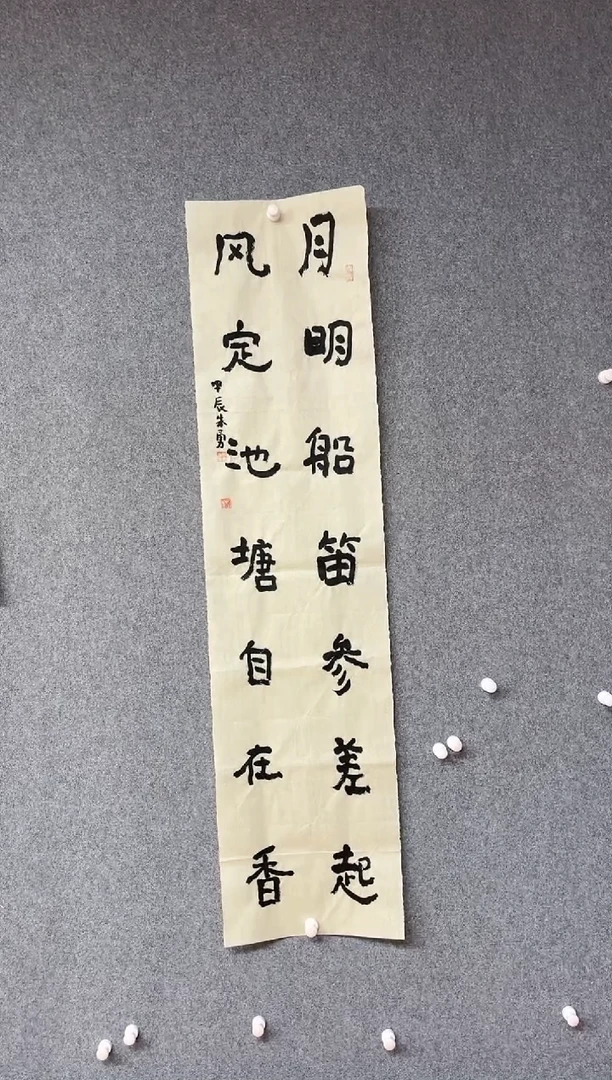 月明船笛参差起
风定池塘自在香
甲辰朱勇